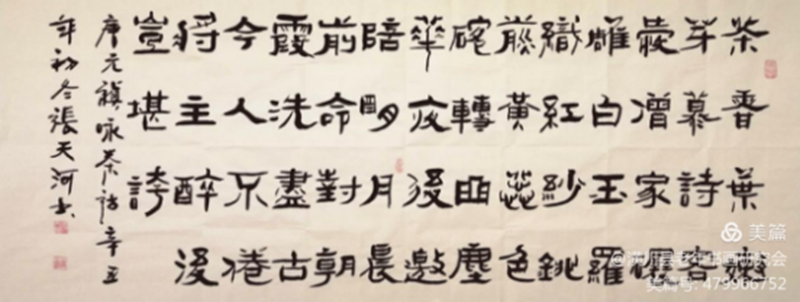 茶香葉嫩
芽慕詩客
愛僧家碾
雕白玉羅
織紅紗銚
煎黃蕊色
碗轉曲塵
華夜後邀
陪明月晨
前命對朝
霞洗盡古
今人不倦
将主醉後
豈堪誇
唐元稹咏茶詩辛丑
年初冬張天河书
美篇
美篇号: 479966752